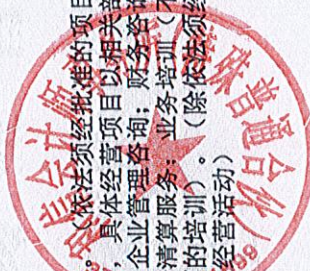 。（依法须经批准的项目
，具体经营项目以相关部
企业管理咨询；财务咨询
清算服务；业务培训（不
的培训）。（除依法须经
经营活动）
会计师
普通合伙